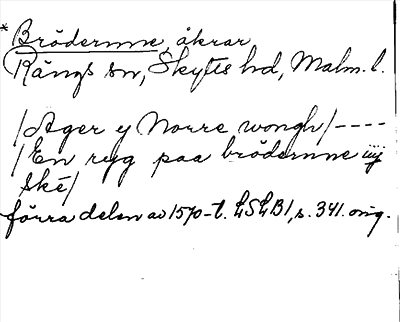 *Brödermne, åkrar
Rängs sn, Skytts hd, Malm. l.
/Ager y Norre wongh/----
/En ryg paa brödermne iiij
ske/
förra delen av 1570-t. LSLB1, s. 341. orig.